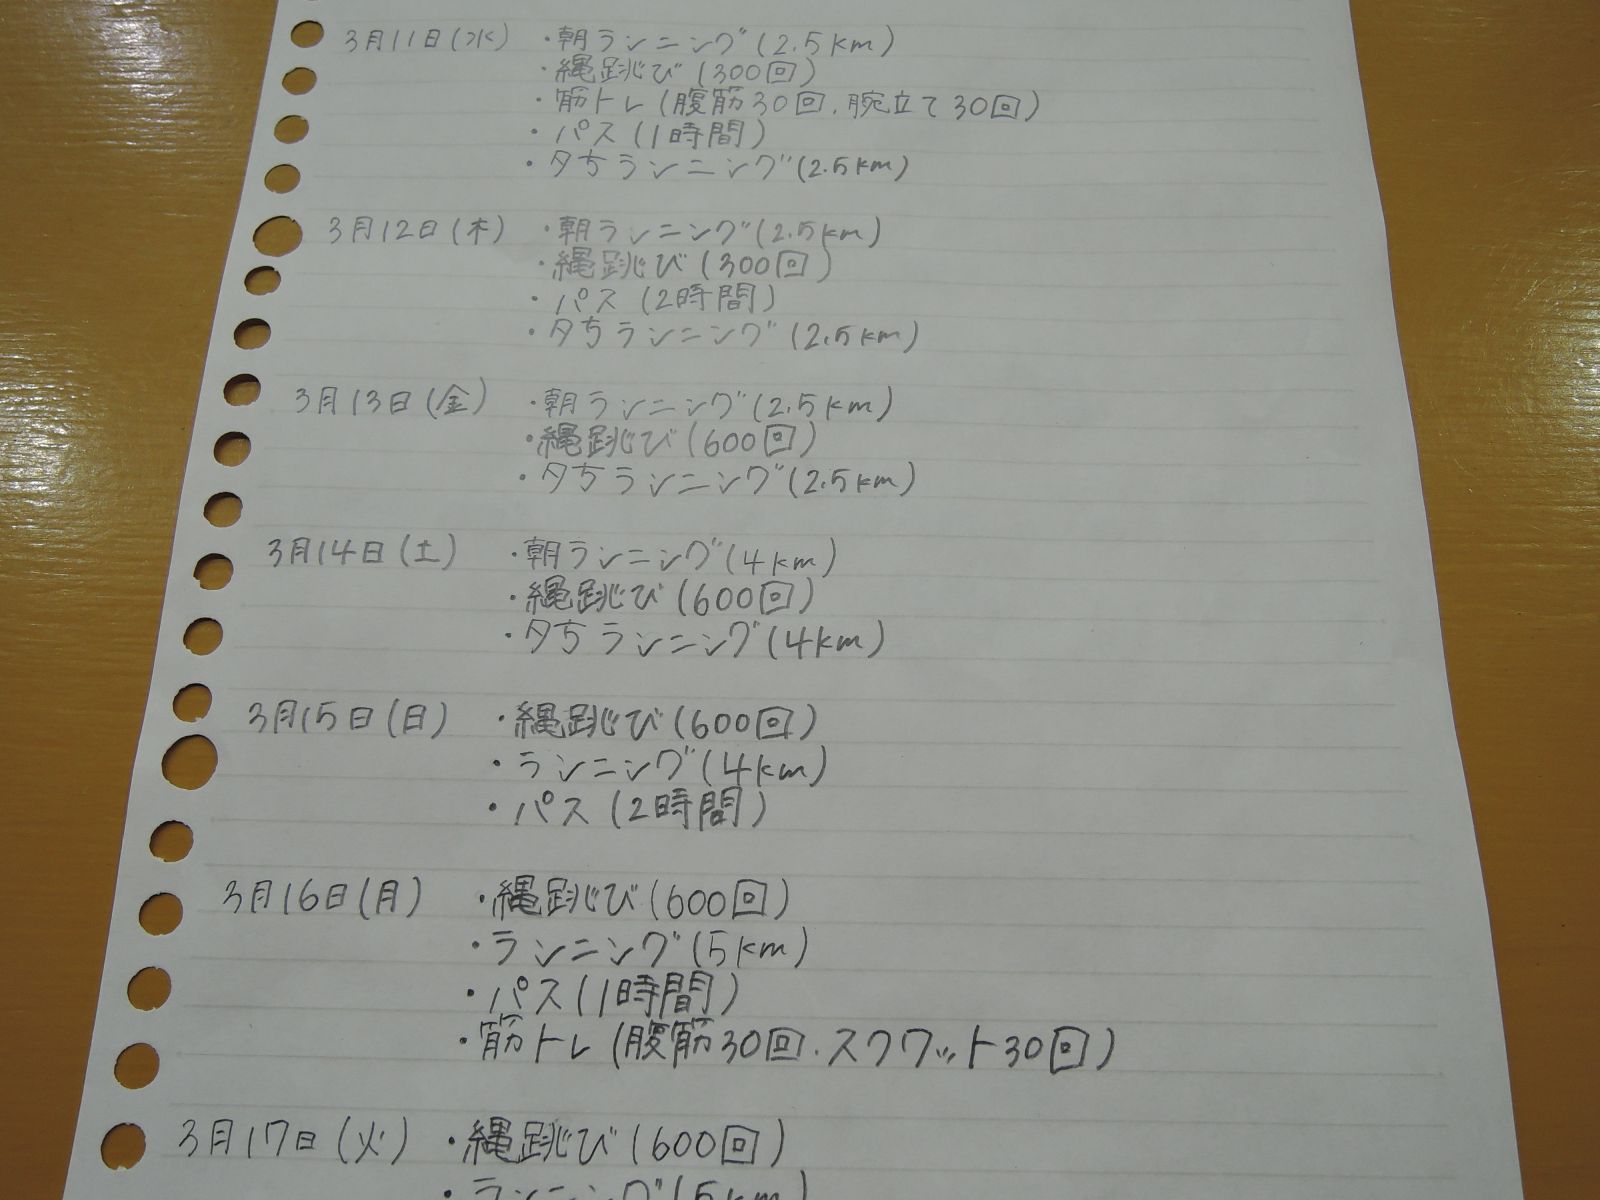 3月11日(水) ・朝ランニング(2.5km)
・縄跳び(300回)
・筋トレ(腹筋30回.腕立て30回)
・パス(1時間)
・夕方ランニング(2.5km)
3月12日(木) ・朝ランニング(2.5km)
・縄跳び(300回)
・パス(2時間)
・夕方ランニング(2.5km)
3月13日(金) ・朝ランニング(2.5km)
・縄跳び(600回)
・夕方ランニング(2.5km)
3月14日(土) ・朝ランニング(4km)
・縄跳び(600回)
・夕方ランニング(4km)
3月15日(日) ・縄跳び(600回)
・ランニング(4km)
・パス(2時間)
3月16日(月) ・縄跳び(600回)
・ランニング(5km)
・パス(1時間)
・筋トレ(腹筋30回.スクワット30回)
3月17日(火) ・縄跳び(600回)
・ランニング(5km)